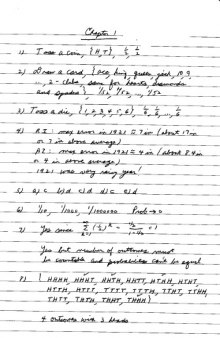 Chapter 1
1) Toss a coin, {H,T}, 1/2, 1/2
2) Draw a card, {ace, king, queen, jack, 10, 9
..., 2 - clubs, same for hearts, diamonds
and spades} 1/52, 1/52, ..., 1/52
3) Toss a die, {1, 2, 3, 4, 5, 6}, 1/6, 1/6, ..., 1/6
4) max error in 1921 ≅ 7 in (about 17 in
or 7 in above average)
max error in 1921 ≅ 4 in (about 8.4 in
or 4 in above average)
1921 was very rainy year!
5) a) c b) d c) d d) c e) d
6) 1/10, 1/1000, 1/1000000 Prob → 0
7) Yes since = 1
Yes but number of outcomes must
be countable and probabilities can't be equal
8) { HHHH, HHHT, HHTH, HHTT, HTHH, HTHT
HTTH, HTTT, TTTT, TTTH, TTHT, TTHH,
THTT, THTH, THHT, THHH }
4 outcomes with 3 heads